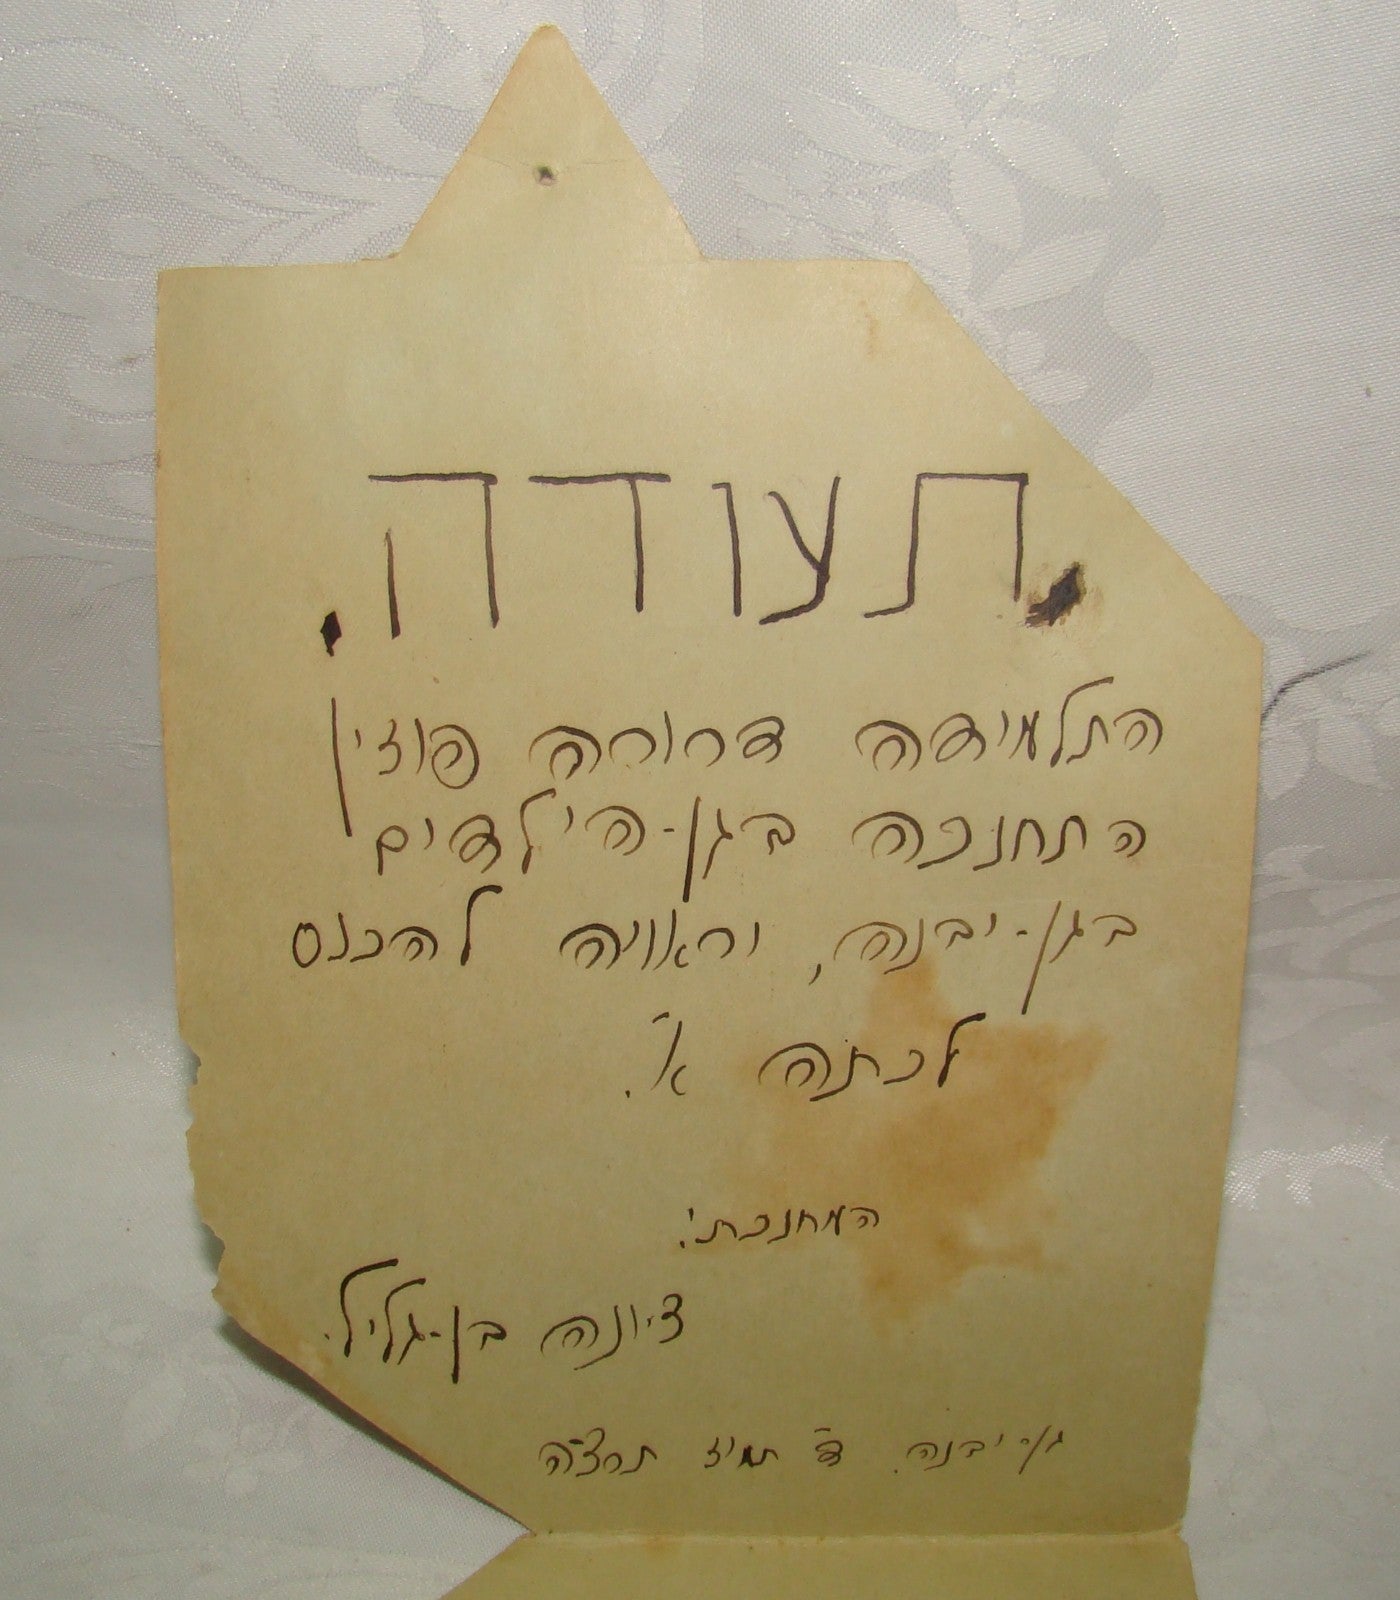 .תעודה.
התלמידה דרורה פוזין
התחנכה בגן-הילדים
בגן-יבנה, וראויה להכנס
לכתה א'.
המחנכת:
ציונה בן-גליל.
גן-יבנה. ד' תמוז תרצ"ה